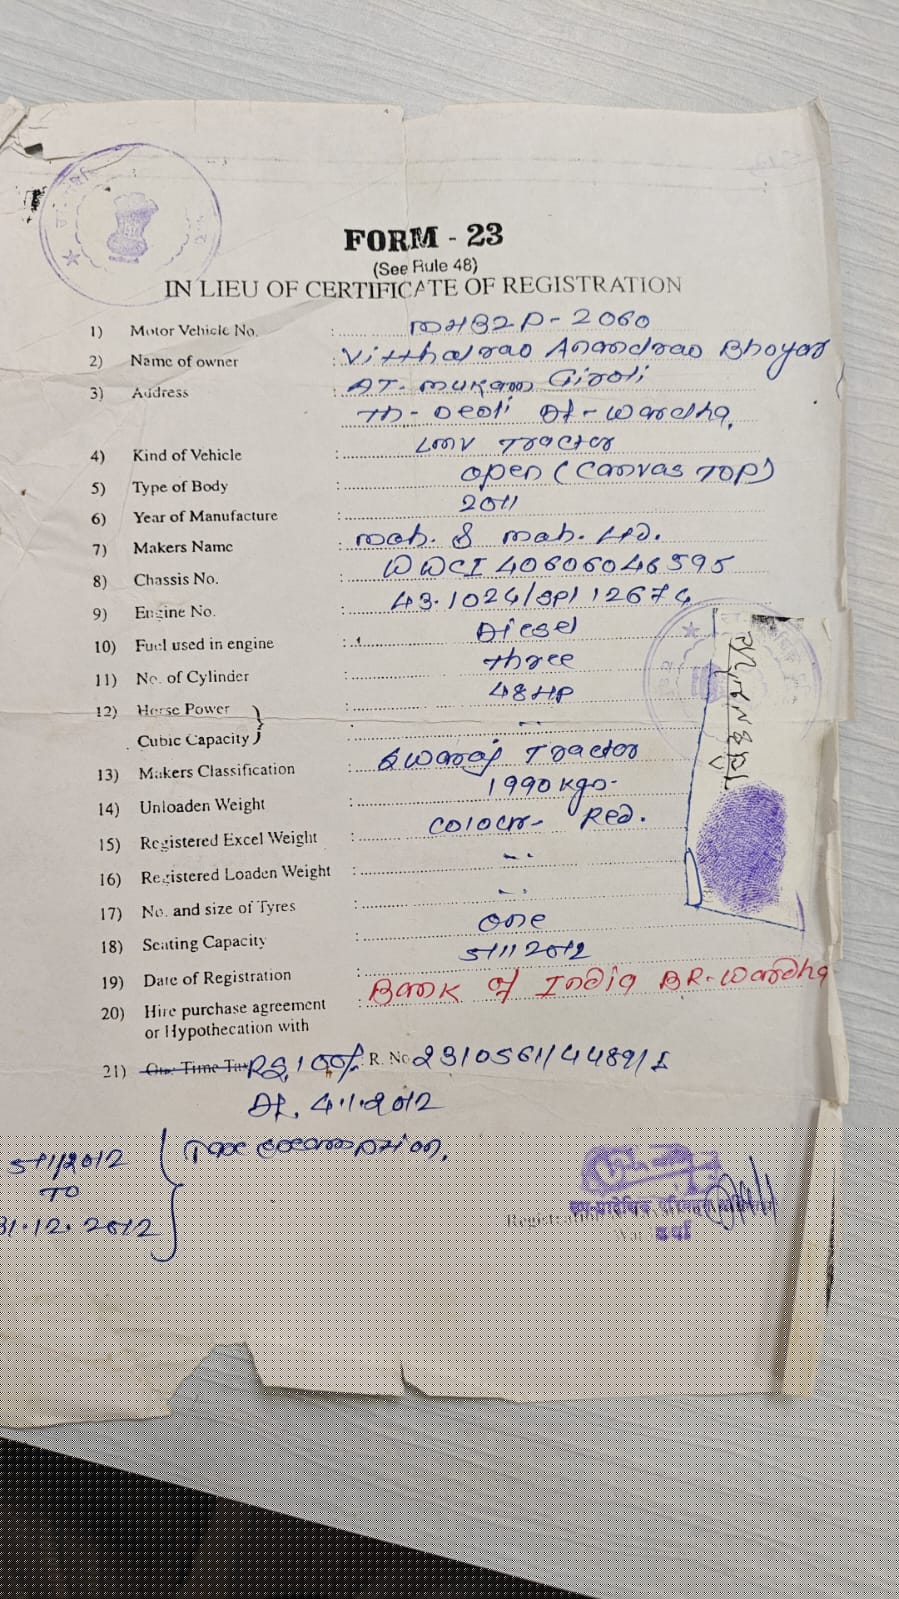 FORM - 23
(See Rule 48)
IN LIEU OF CERTIFICATE OF REGISTRATION
1) Motor Vehicle No. : MH32P-2060
2) Name of owner : Vitthalrao Anandrao Bhoyar
3) Address : AT. mukam Giroli
Th- Deoli Dt- Wardha.
4) Kind of Vehicle : LMV Tractor
5) Type of Body : open (Canvas TOP)
6) Year of Manufacture : 2011
7) Makers Name : mah. & mah. Ltd.
8) Chassis No. : WWCI 40606046595
9) Engine No. : 43.1024/SPI 12674
10) Fuel used in engine : Diesel
11) No. of Cylinder : three
12) Horse Power : 48 HP
Cubic Capacity : --
13) Makers Classification : Swaraj Tractor
14) Unloaden Weight : 1990 kgs-
15) Registered Excel Weight : Colour- Red.
16) Registered Loaden Weight : --
17) No. and size of Tyres : --
18) Seating Capacity : one
19) Date of Registration : 5/1/2012
20) Hire purchase agreement : Bank of India BR-Wardha
or Hypothecation with
21) One Time Tax RS, 100/- R. No 2310561/4489/I
Dt. 4.1.2012
5/1/2012
TO
31.12.2012
Tax
उप-प्रादेशिक परिवहन
वर्धा